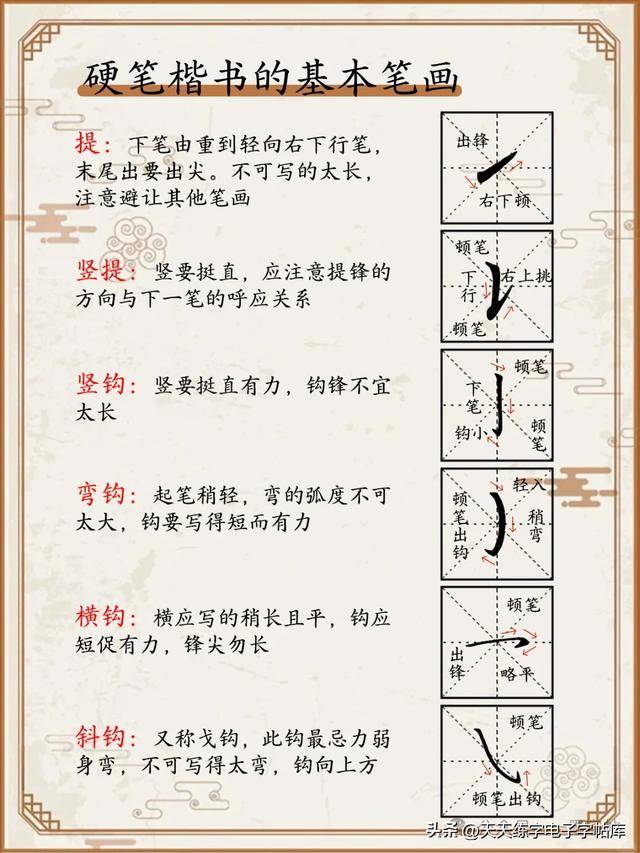 硬笔楷书的基本笔画
提：下笔由重到轻向右下行笔，
末尾出要出尖。不可写的太长，
注意避让其他笔画
出锋
右下顿
竖提：竖要挺直，应注意提锋的
方向与下一笔的呼应关系
顿笔
下行
右上挑
顿笔
竖钩：竖要挺直有力，钩锋不宜
太长
顿笔
下笔
钩小
顿笔
弯钩：起笔稍轻，弯的弧度不可
太大，钩要写得短而有力
轻入
顿笔出钩
稍弯
横钩：横应写的稍长且平，钩应
短促有力，锋尖勿长
顿笔
出锋
略平
斜钩：又称戈钩，此钩最忌力弱
身弯，不可写得太弯，钩向上方
顿笔
顿笔出钩
头条@天天练字电子字帖库